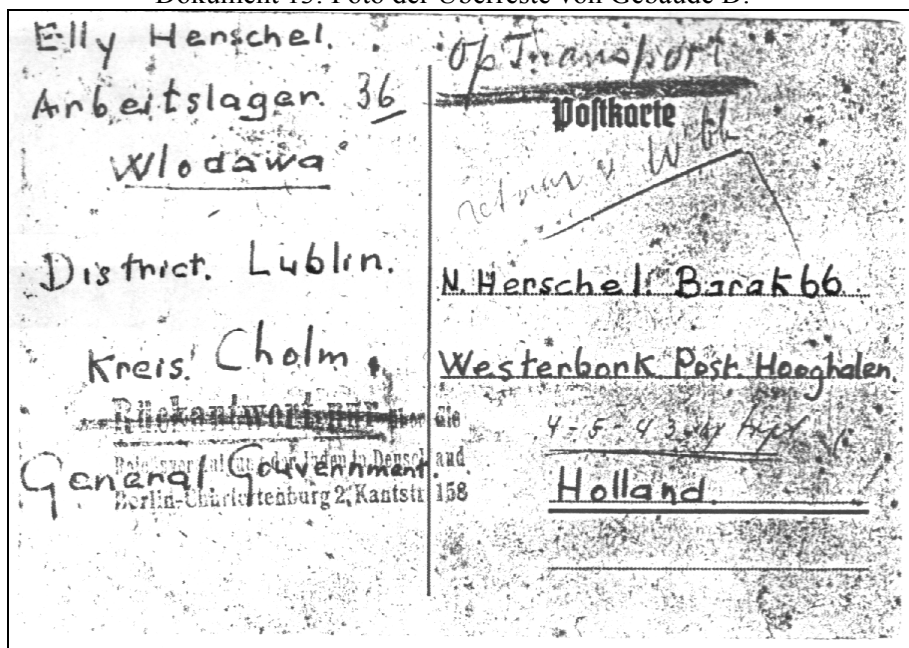 Dokument 13: Foto der Überreste von Gebäude D.
Elly Henschel.
Arbeitslager. 36
Wlodawa
District. Lublin.
Kreis. Cholm.
Rückantwort nur über die
Reichsvereinigung der Juden in Deutschland
Berlin-Charlottenburg 2, Kantstr 158
General Gouvernment.
Op Transport
Postkarte
N. Henschel. Barak 66.
Westerbork. Post. Hooghalen.
4-5-43
Holland.